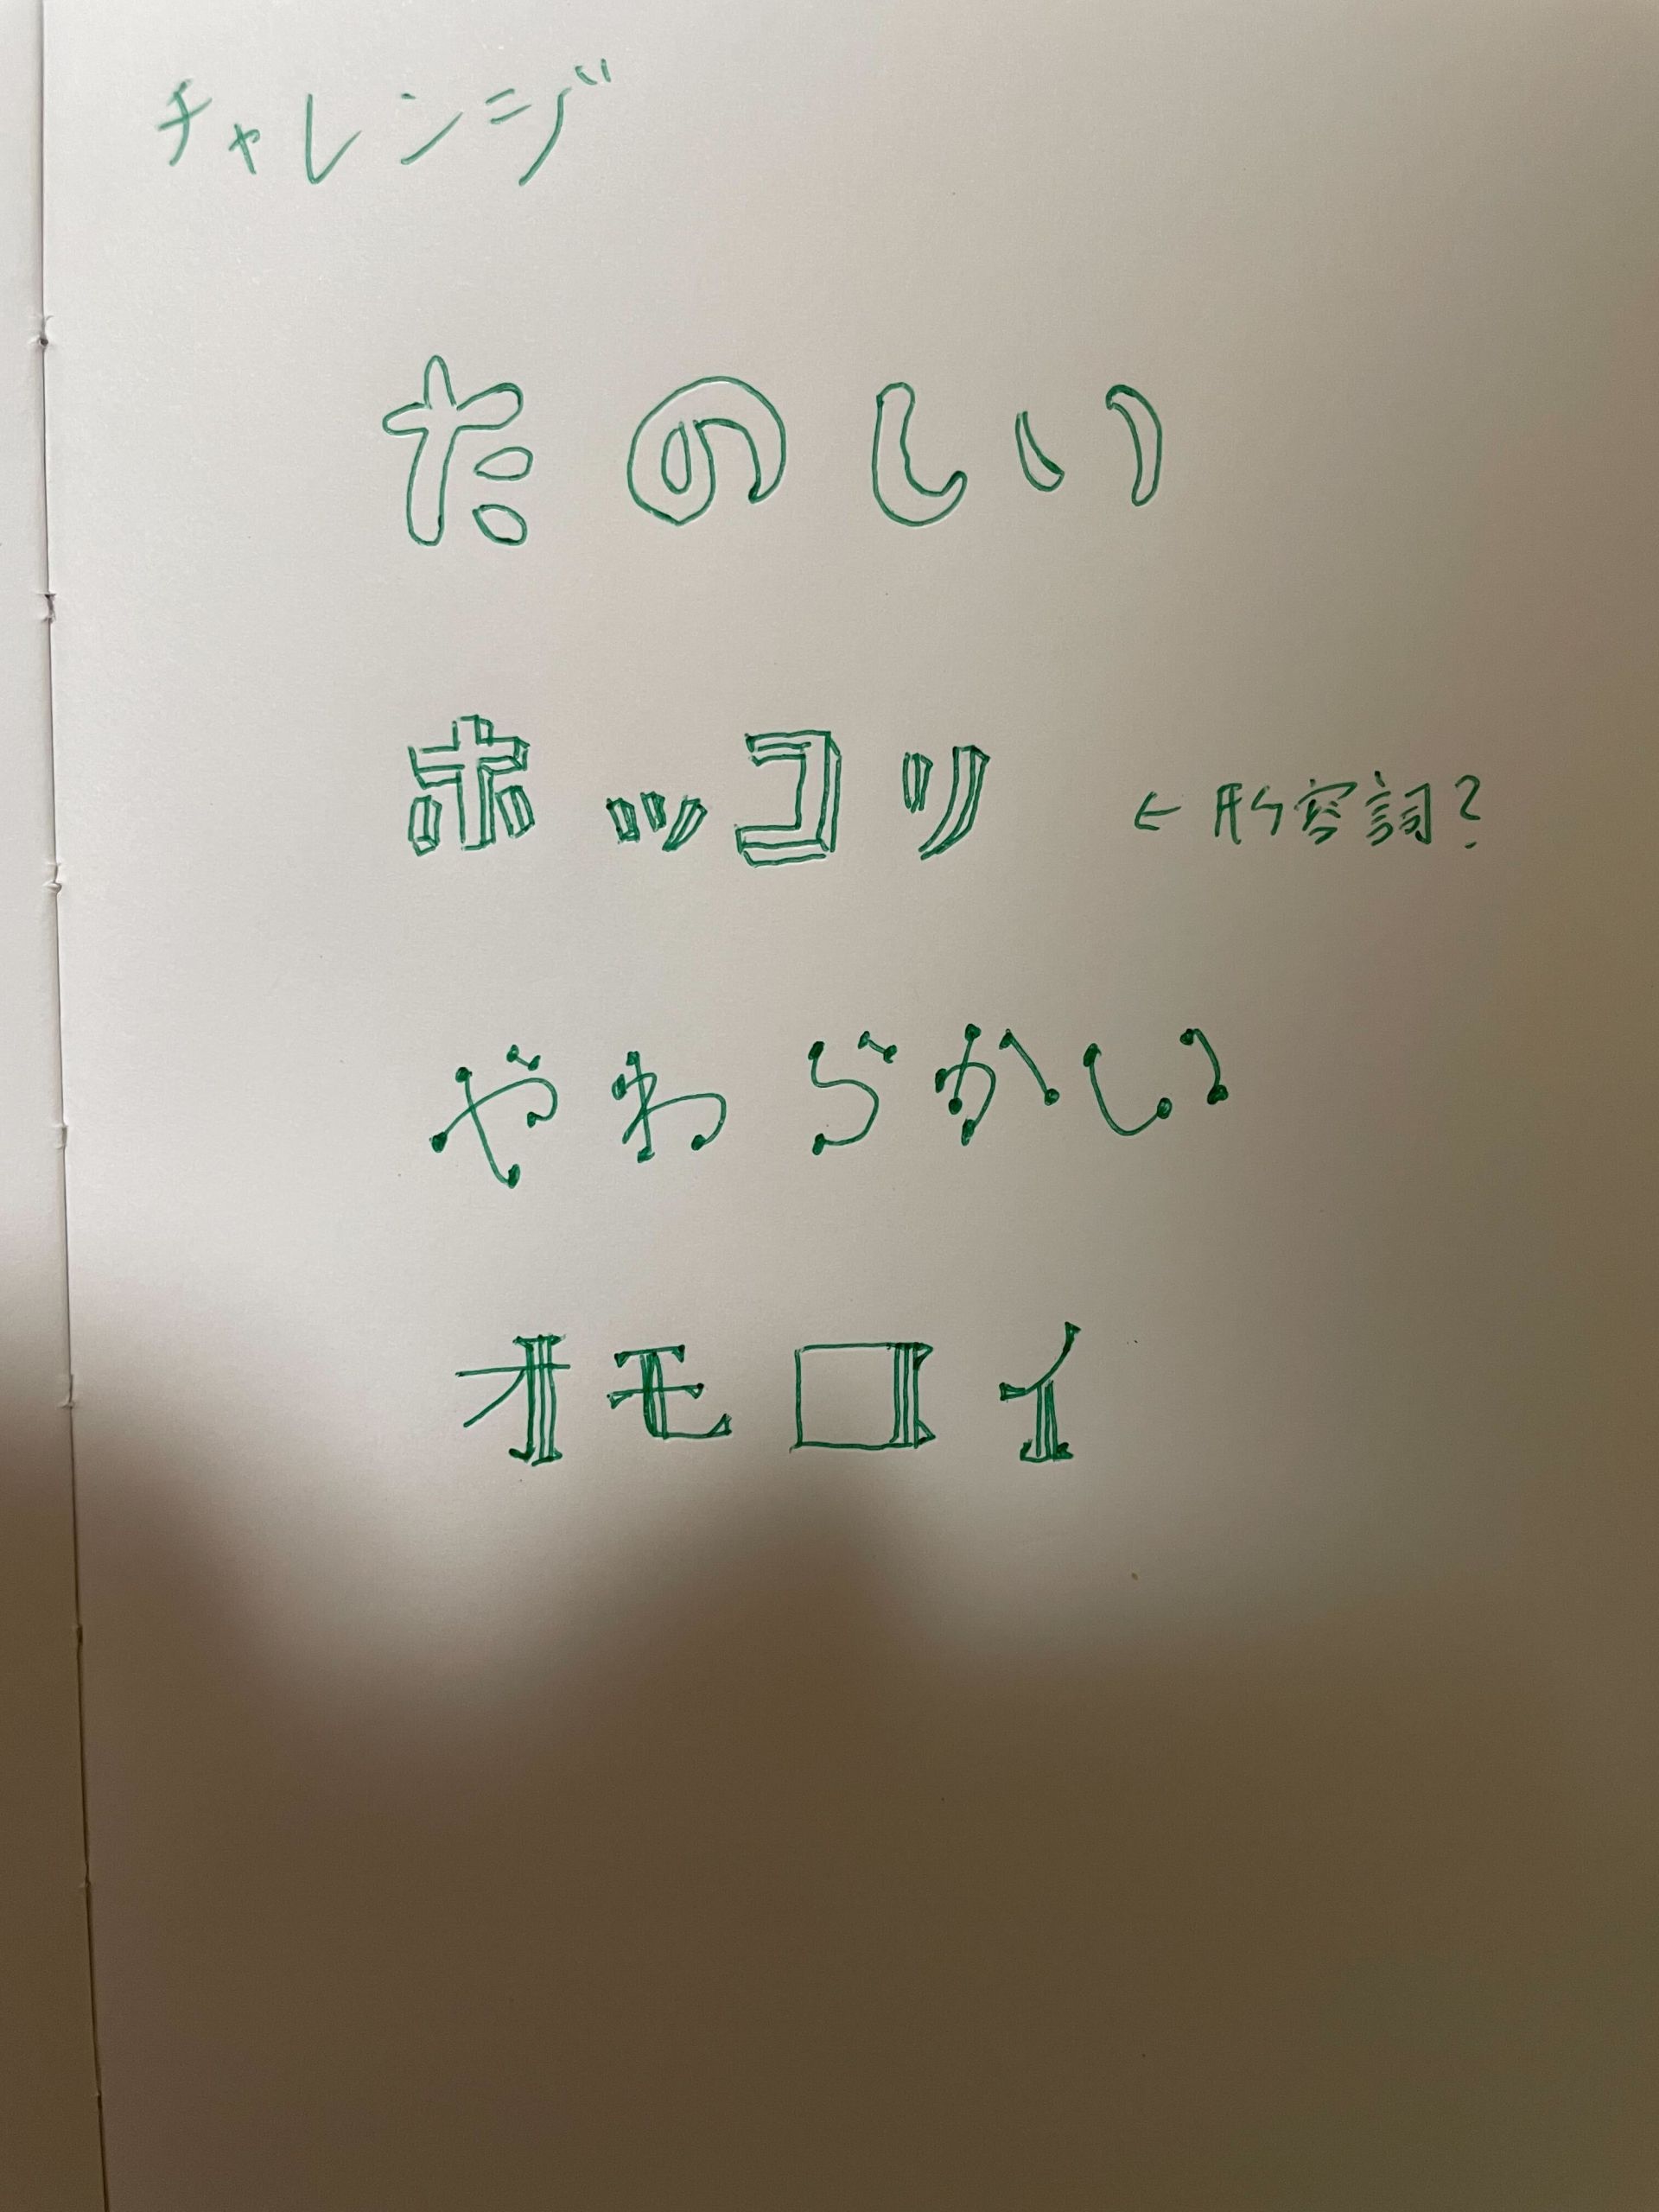 チャレンジ
たのしい
ホッコリ ← 形容詞?
やわらかい
オモロイ